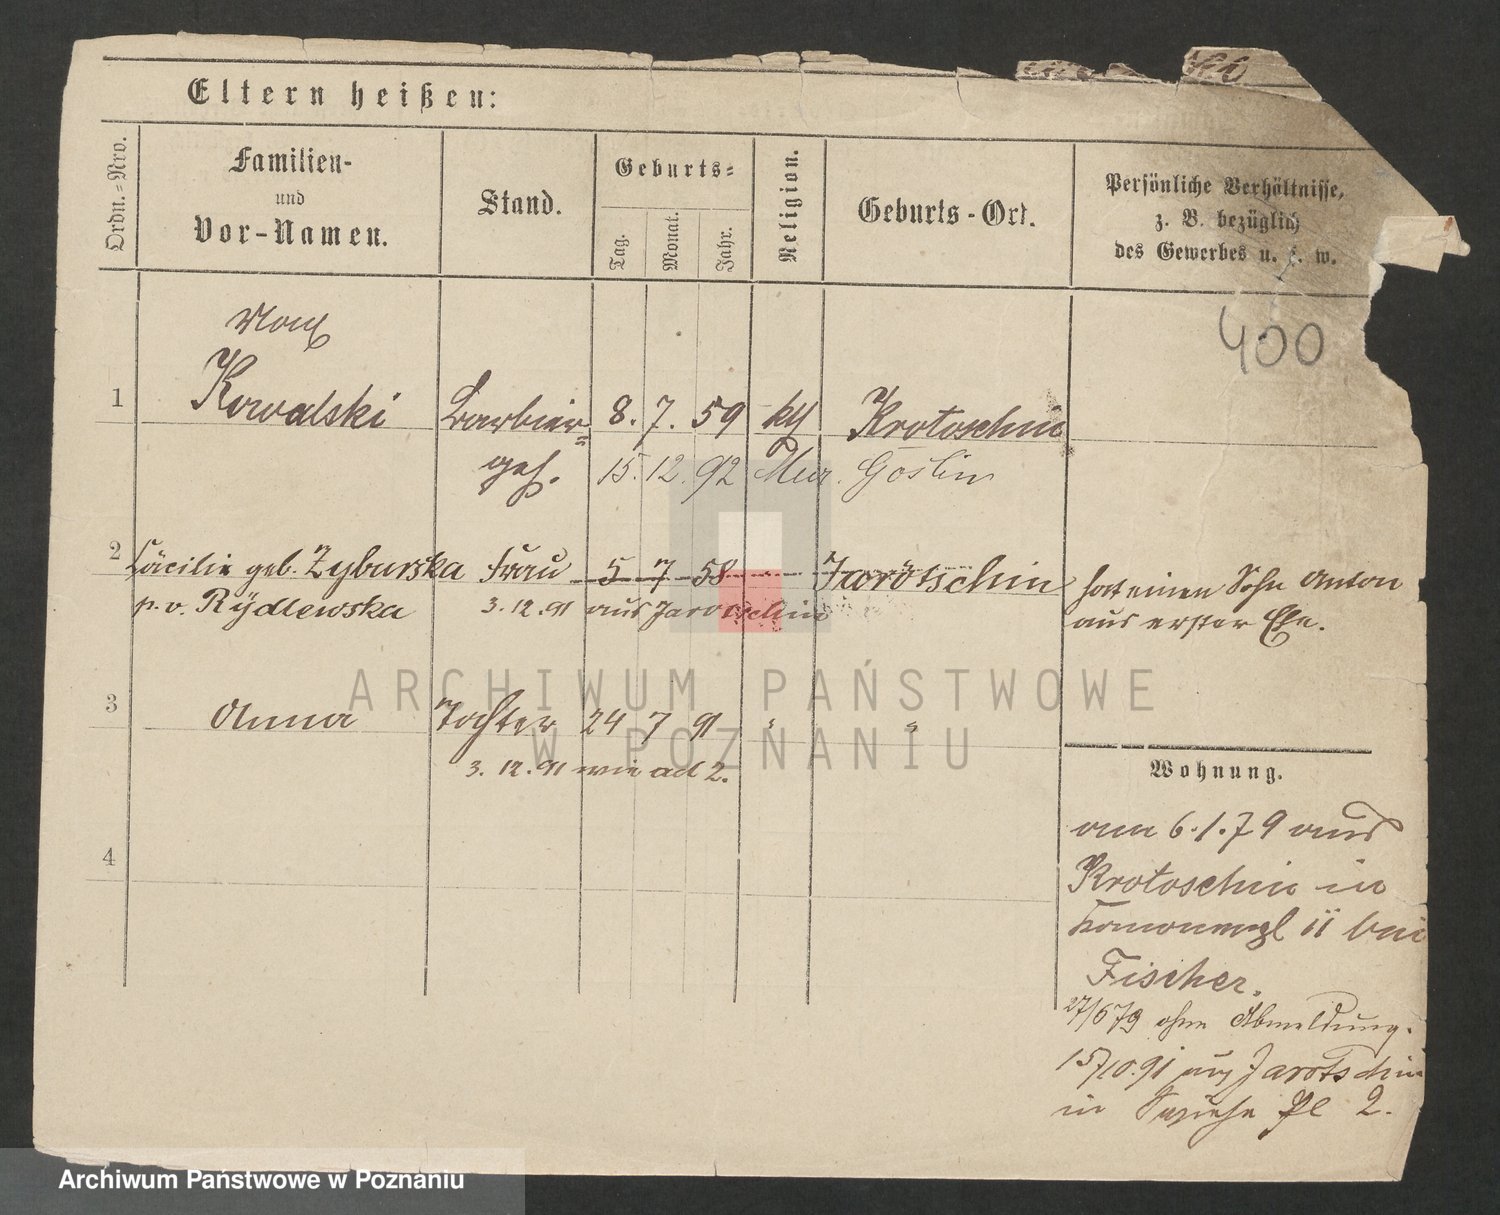 Eltern heißen:
Ordn.-Nro.
Familien-
und
Vor-Namen.
Stand.
Geburts-
Tag.
Monat.
Jahr.
Religion.
Geburts-Ort.
Persönliche Verhältnisse,
z. B. bezüglich
des Gewerbes u. s. w.
400
Max
1 Kowalski Barbier- 8. 7. 59 kth Krotoschin
geh. 15. 12. 92 Mur. Goslin
2 Cäcilie geb. Zyburska Frau 5 7 58 Jarotschin hat einen Sohn Anton
p. v. Rydlewska 3.12.91 aus Jarotschin aus erster Ehe.
3 Anna Tochter 24 7 91 " "
3. 12. 91 wie ad 2.
Wohnung.
am 6.1.79 aus
4 Krotoschin in
II bei
Fischer.
27/6 79 ohne Abmeldung.
15/10.91 aus Jarotschin
in Pl 2.
ARCHIWUM PAŃSTWOWE
W POZNANIU
Archiwum Państwowe w Poznaniu